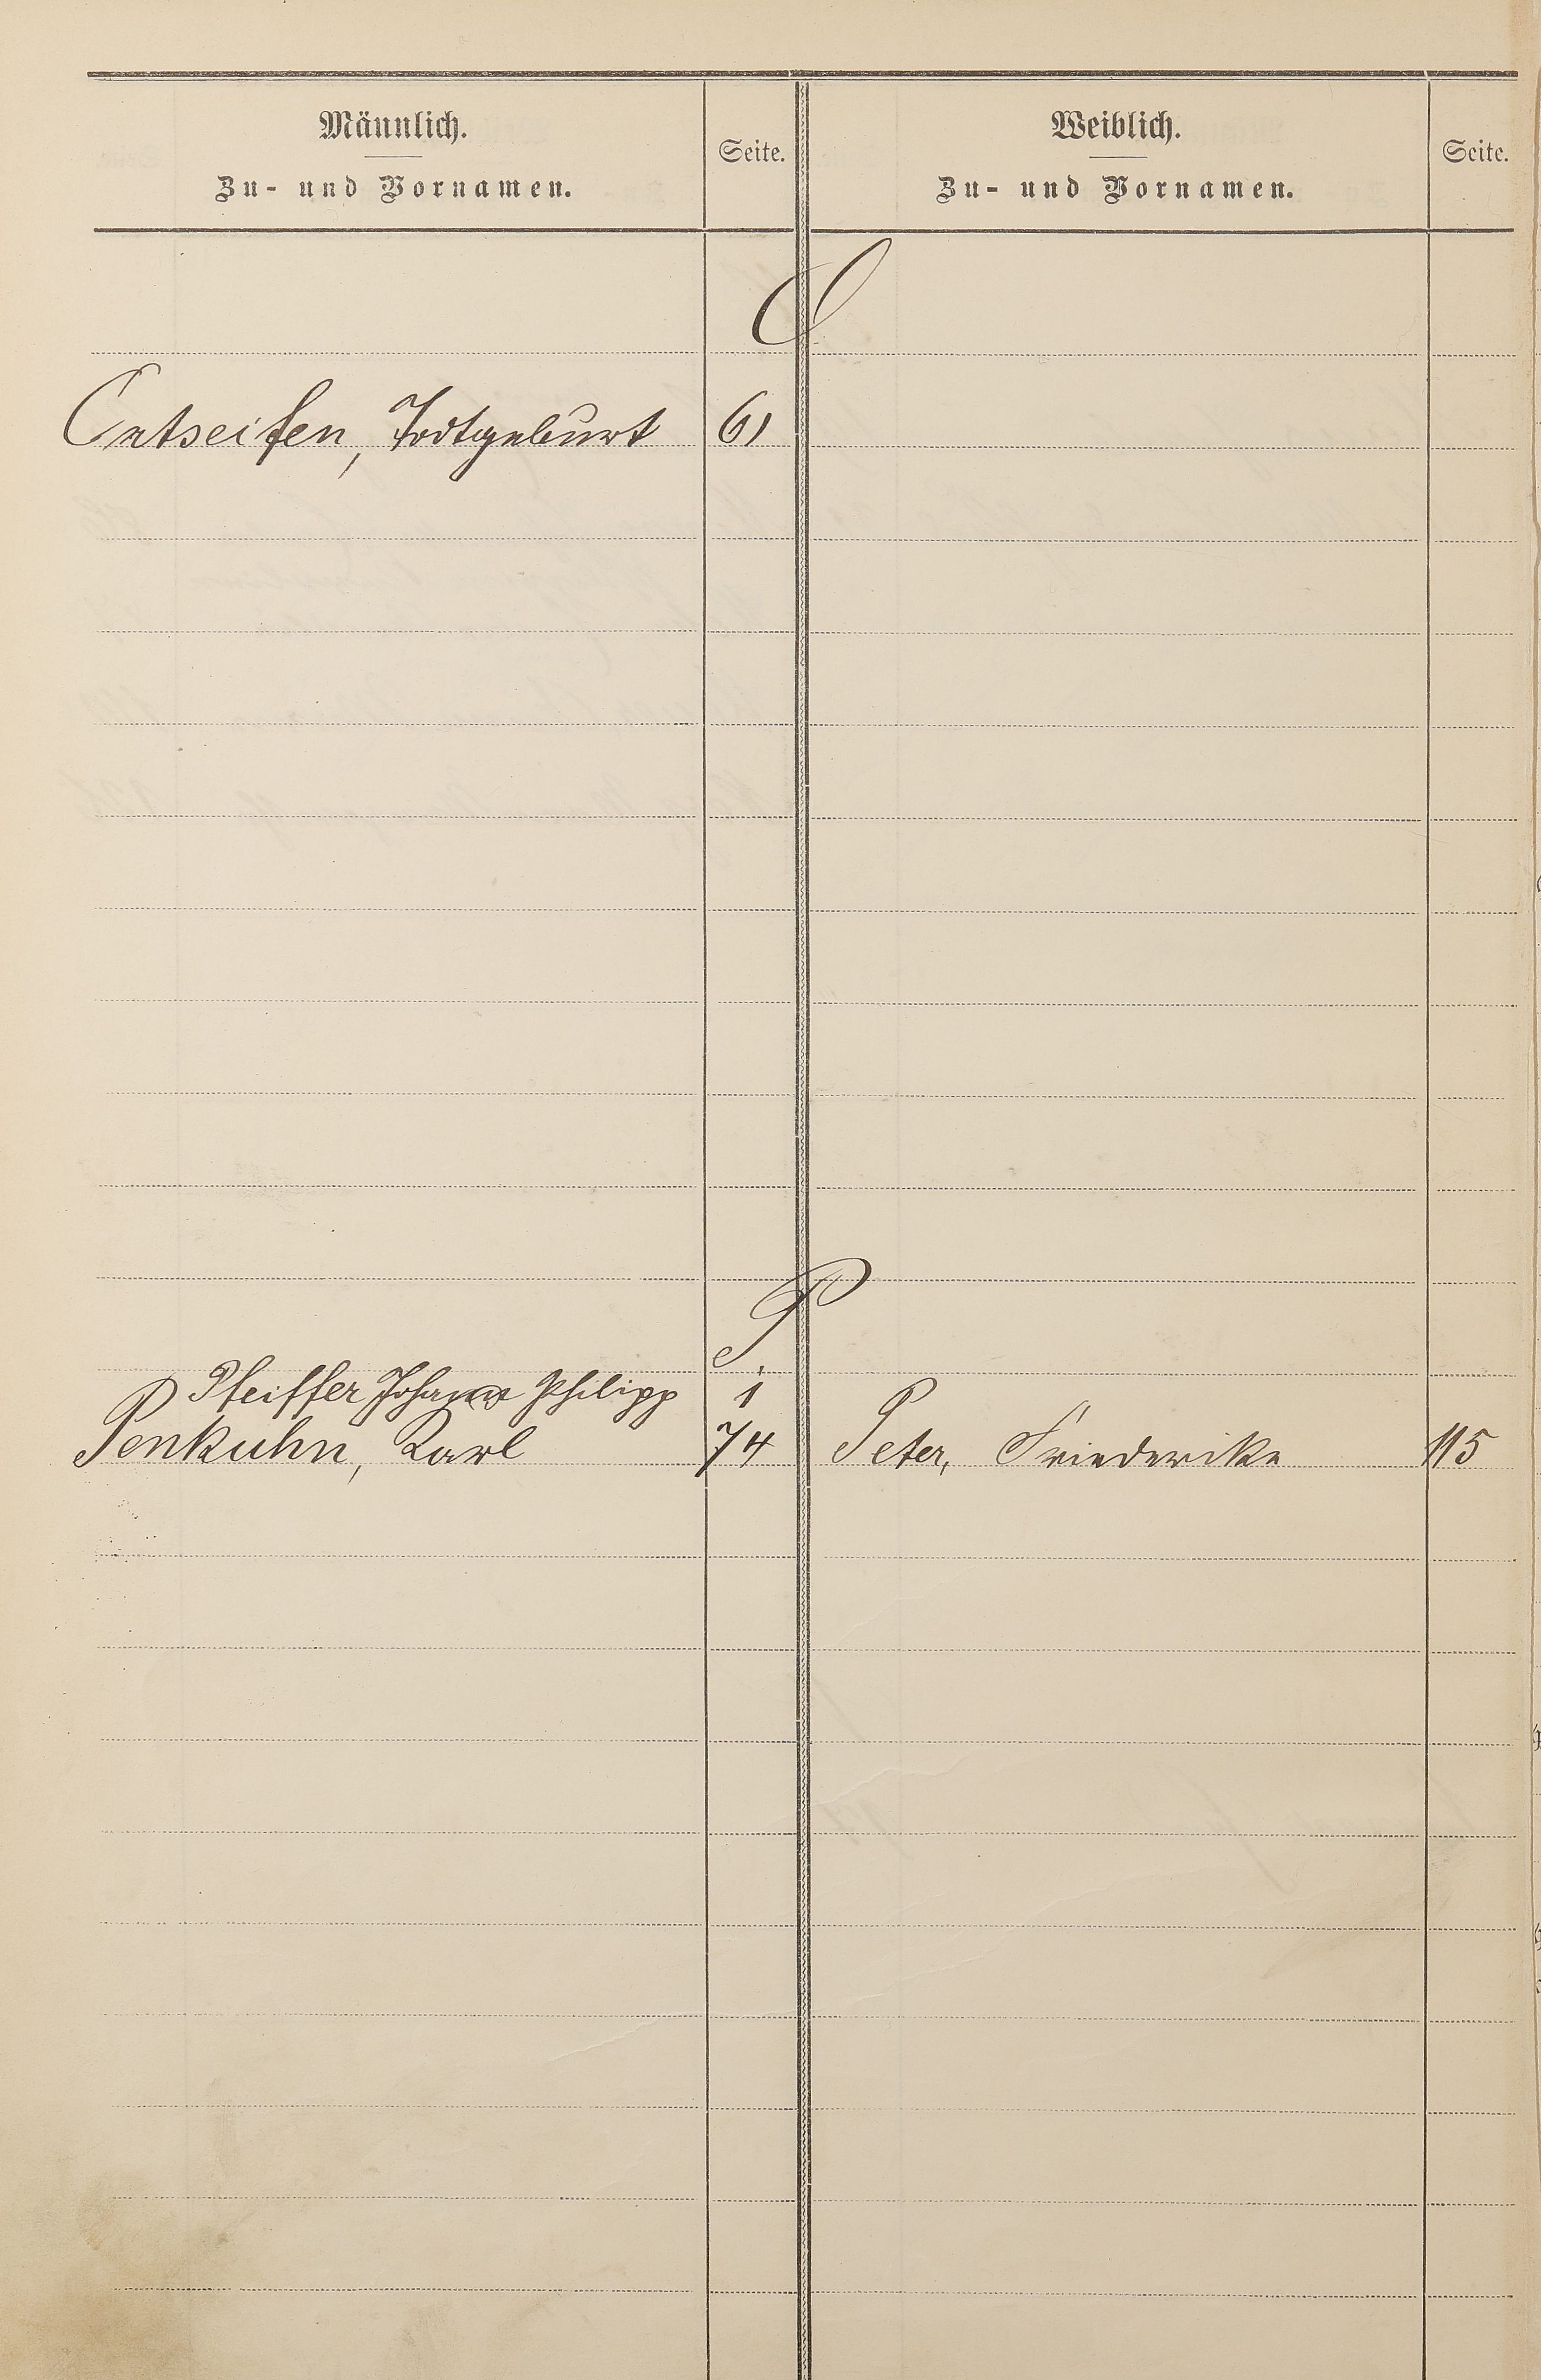 Männlich.
Zu- und Vornamen.
Seite.
Weiblich.
Zu- und Vornamen.
Seite.
O
Ortseifen, Todtgeburt 61
P.
Pfeiffer Johann Philipp 1
Penkuhn, Karl 74
Peter, Friederike 115